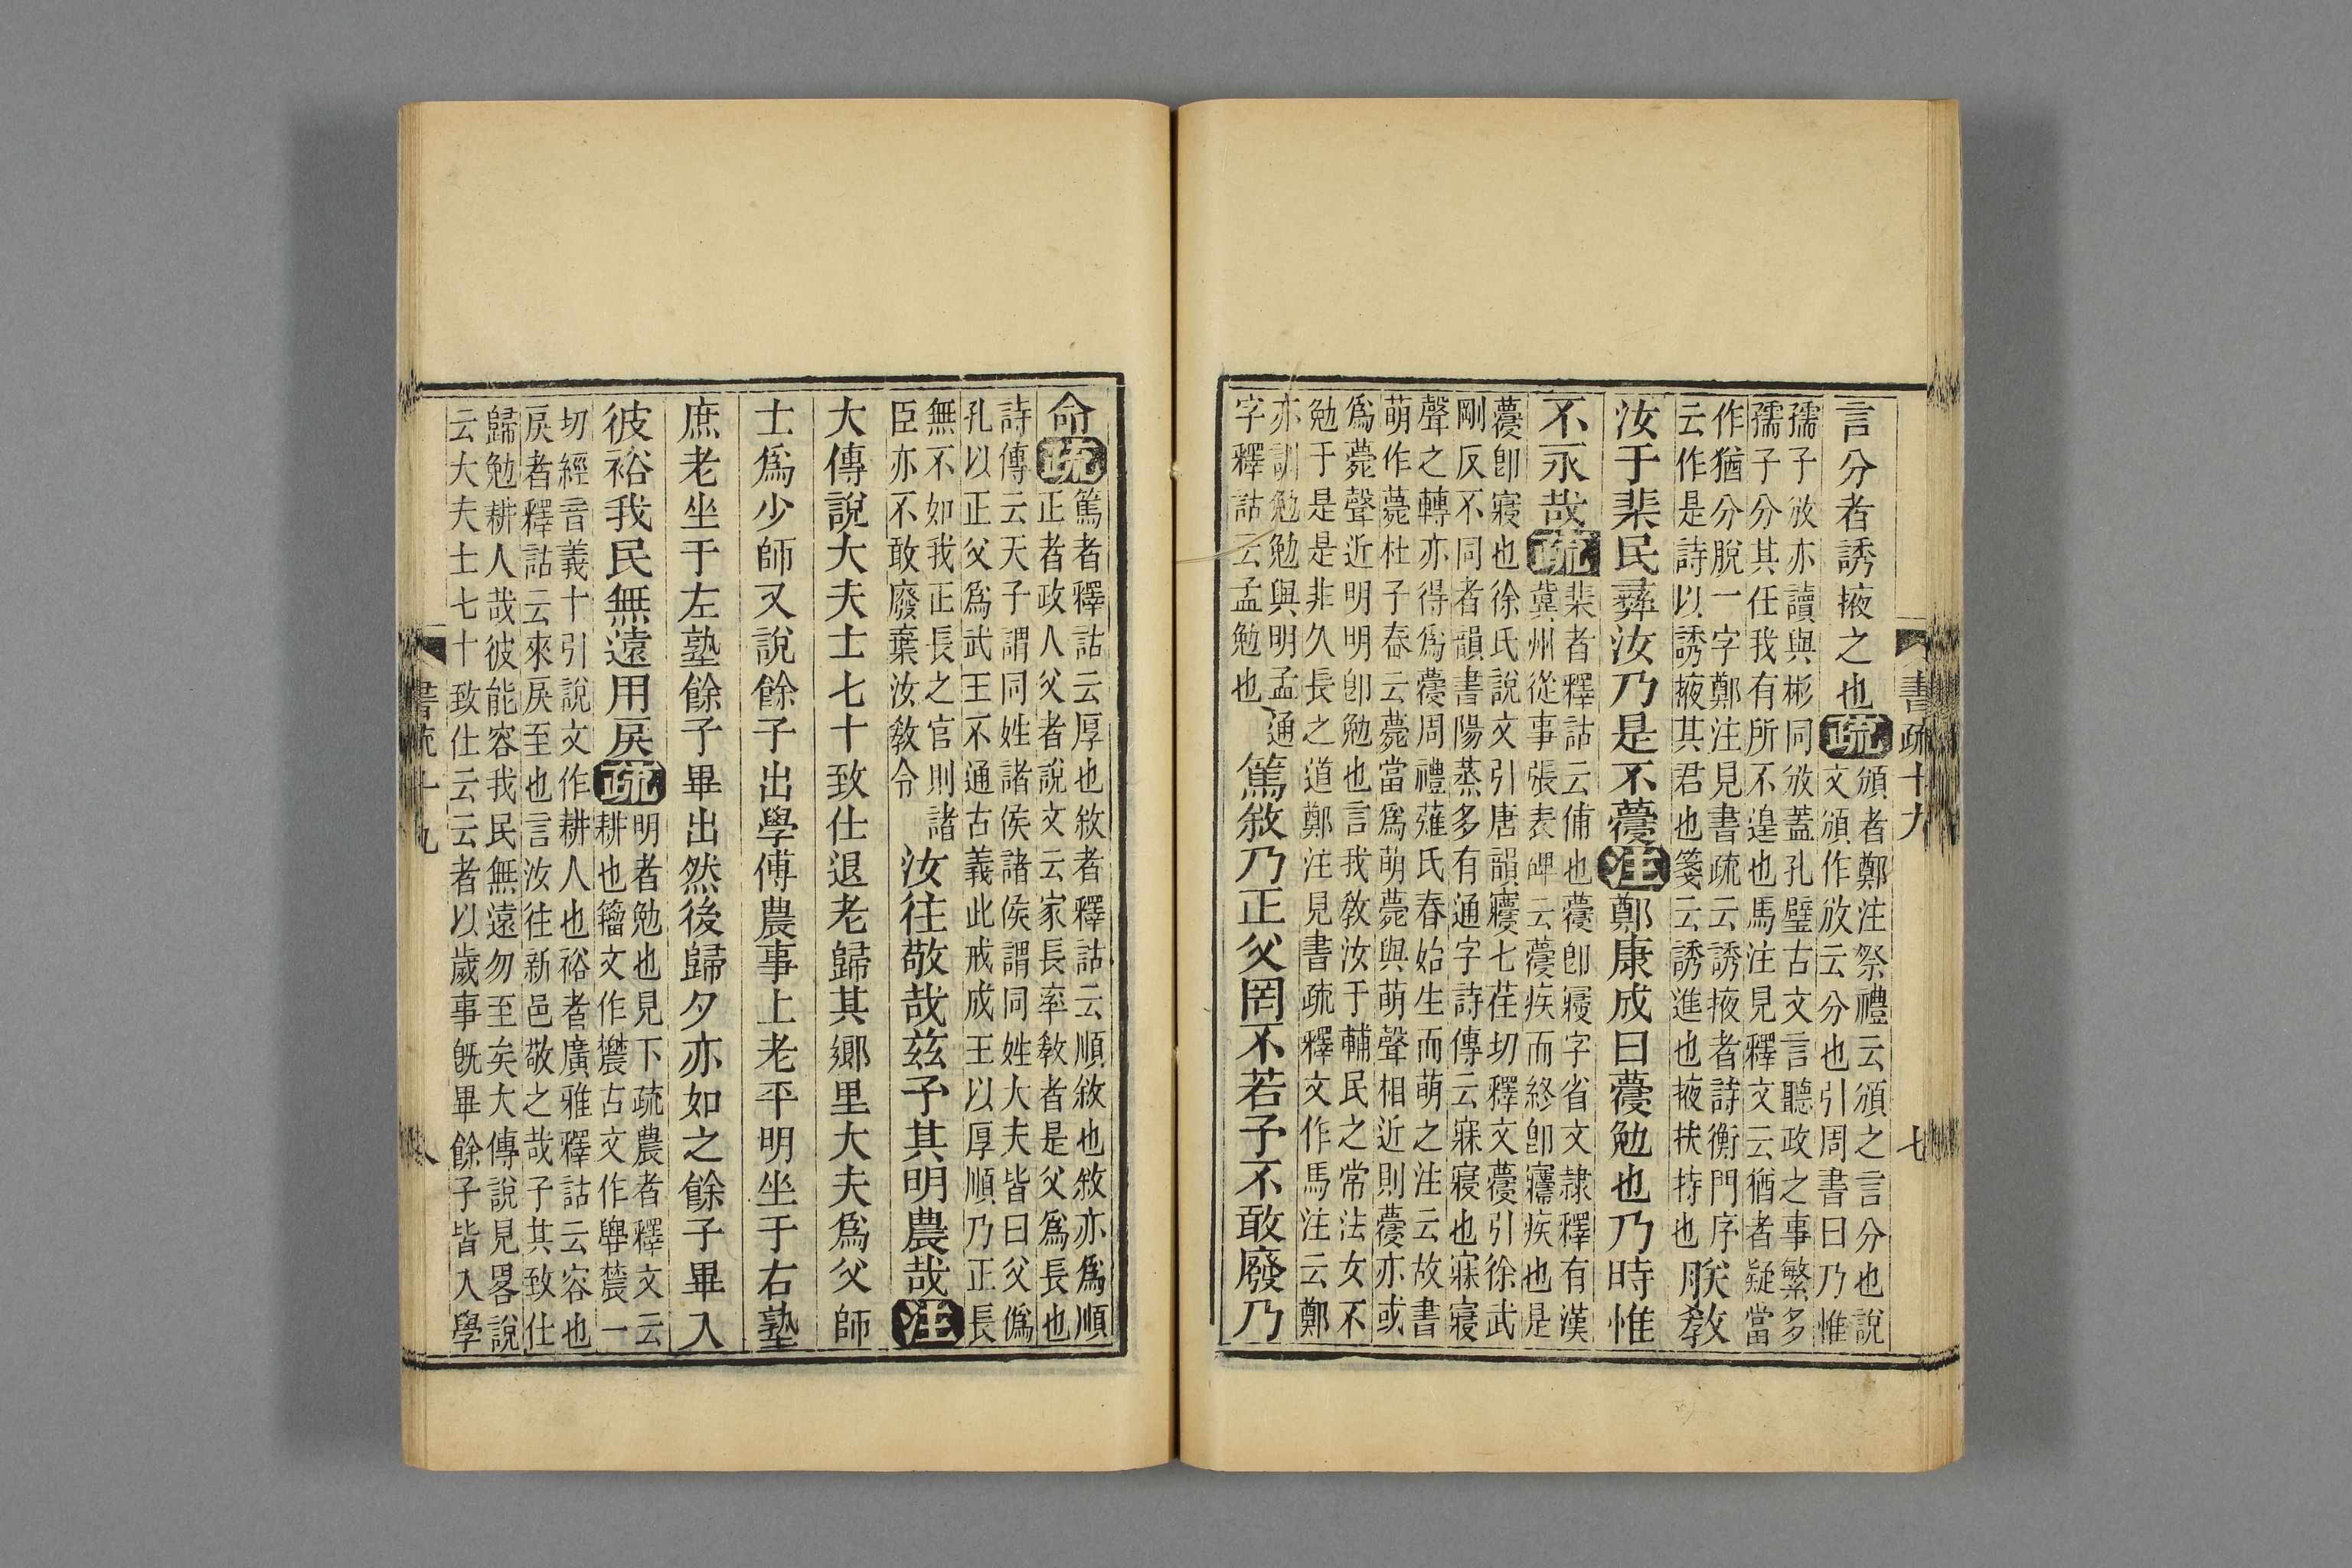 言分者誘掖之也疏
頒者鄭注祭禮云頒之言分也說
文頒作攽云分也引周書曰乃惟
孺子攽亦讀與彬同攽蓋孔壁古文言聽政之事繁多
孺子分其任我有所不遑也馬注見釋文云猶者疑當
作猶分脫一字鄭注見書疏云誘掖者詩衡門序
云作是詩以誘掖其君也箋云誘進也掖扶持也
朕敎
汝于棐民彝汝乃是不蘉注鄭康成曰蘉勉也乃時惟
不永哉疏
棐者釋詁云俌也蘉卽寢字省文隷釋有漢
冀州從事張表碑云蘉疾而終卽寢疾也是
蘉卽寢也徐氏說文引唐韻寢七荏切釋文蘉引徐武
剛反不同者韻書陽蒸多有通字詩傳云寐寢也寐寢
聲之轉亦得爲蘉周禮薙氏春始生而萌之注云故書
萌作薨杜子春云薨當爲萌薨與萌聲相近則蘉亦或
爲薨聲近明明卽勉也言我敎汝于輔民之常法女不
勉于是是非久長之道鄭注見書疏釋文作馬注云鄭
亦訓勉勉與明孟通
字釋詁云孟勉也
篤敘乃正父罔不若予不敢廢乃
書疏十九
七
命疏
篤者釋詁云厚也敘者釋詁云順敘也敘亦爲順
正者政人父者說文云家長率敎者是父爲長也
詩傳云天子謂同姓諸侯諸侯謂同姓大夫皆曰父僞
孔以正父爲武王不通古義此戒成王以厚順乃正長
無不如我正長之官則諸
臣亦不敢廢棄汝敎令
汝往敬哉茲予其明農哉注
大傳說大夫士七十致仕退老歸其鄉里大夫爲父師
士爲少師又說餘子出學傅農事上老平明坐于右塾
庶老坐于左塾餘子畢出然後歸夕亦如之餘子畢入
彼裕我民無遠用戾疏
明者勉也見下疏農者釋文云
耕也籀文作𨑋古文作𦦥䢉一
切經音義十引說文作耕人也裕者廣雅釋詁云容也
戾者釋詁云來戾至也言汝往新邑敬之哉予其致仕
歸勉耕人哉彼能容我民無遠勿至矣大傳說見畧說
云大夫士七十致仕云云者以歲事旣畢餘子皆入學
書疏十九
八